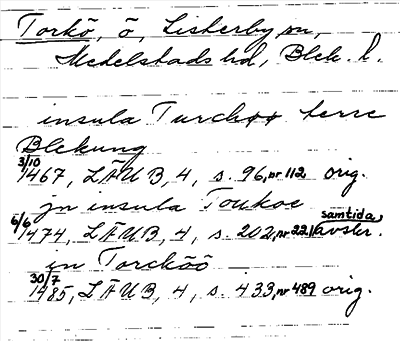 Torkö, ö, Listerby sn,
Medelstads hd, Blek. l.
insula Turchøø terre
Blekung
3/10 1467, LÄUB, 4, s. 96, nr 112 orig.
jn insula Toukoe
6/6 1474, LÄUB, 4, s. 202, nr 221 samtida avskr.
en Torcköö
30/7 1485, LÄUB, 4, s. 433, nr 489 orig.